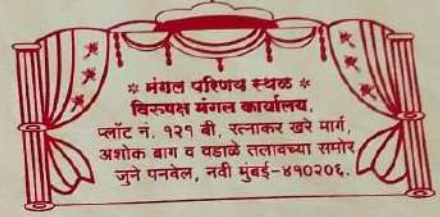 ❊ मंगल परिणय स्थळ ❊
विरुपाक्ष मंगल कार्यालय,
प्लॉट नं. १२१ बी, रत्नाकर खरे मार्ग,
अशोक बाग व वडाळे तलावच्या समोर
जुने पनवेल, नवी मुंबई-४१०२०६.